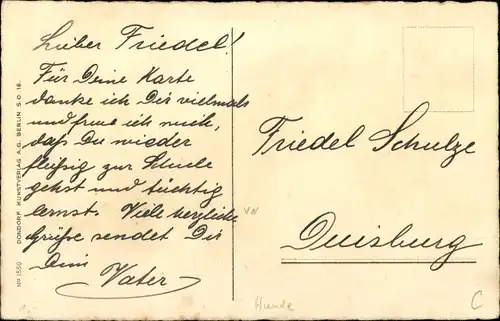 Lieber Friedel!
Für Deine Karte
danke ich Dir vielmals
und freue ich mich,
daß Du wieder
fleißig zur Schule
gehst und tüchtig
lernst. Viele herzliche
Grüße sendet Dir
Dein
Vater
Friedel Schulze
Duisburg
No 1550 DONDORF KUNSTVERLAG A.G. BERLIN S.O. 16.
VN
Hunde
C